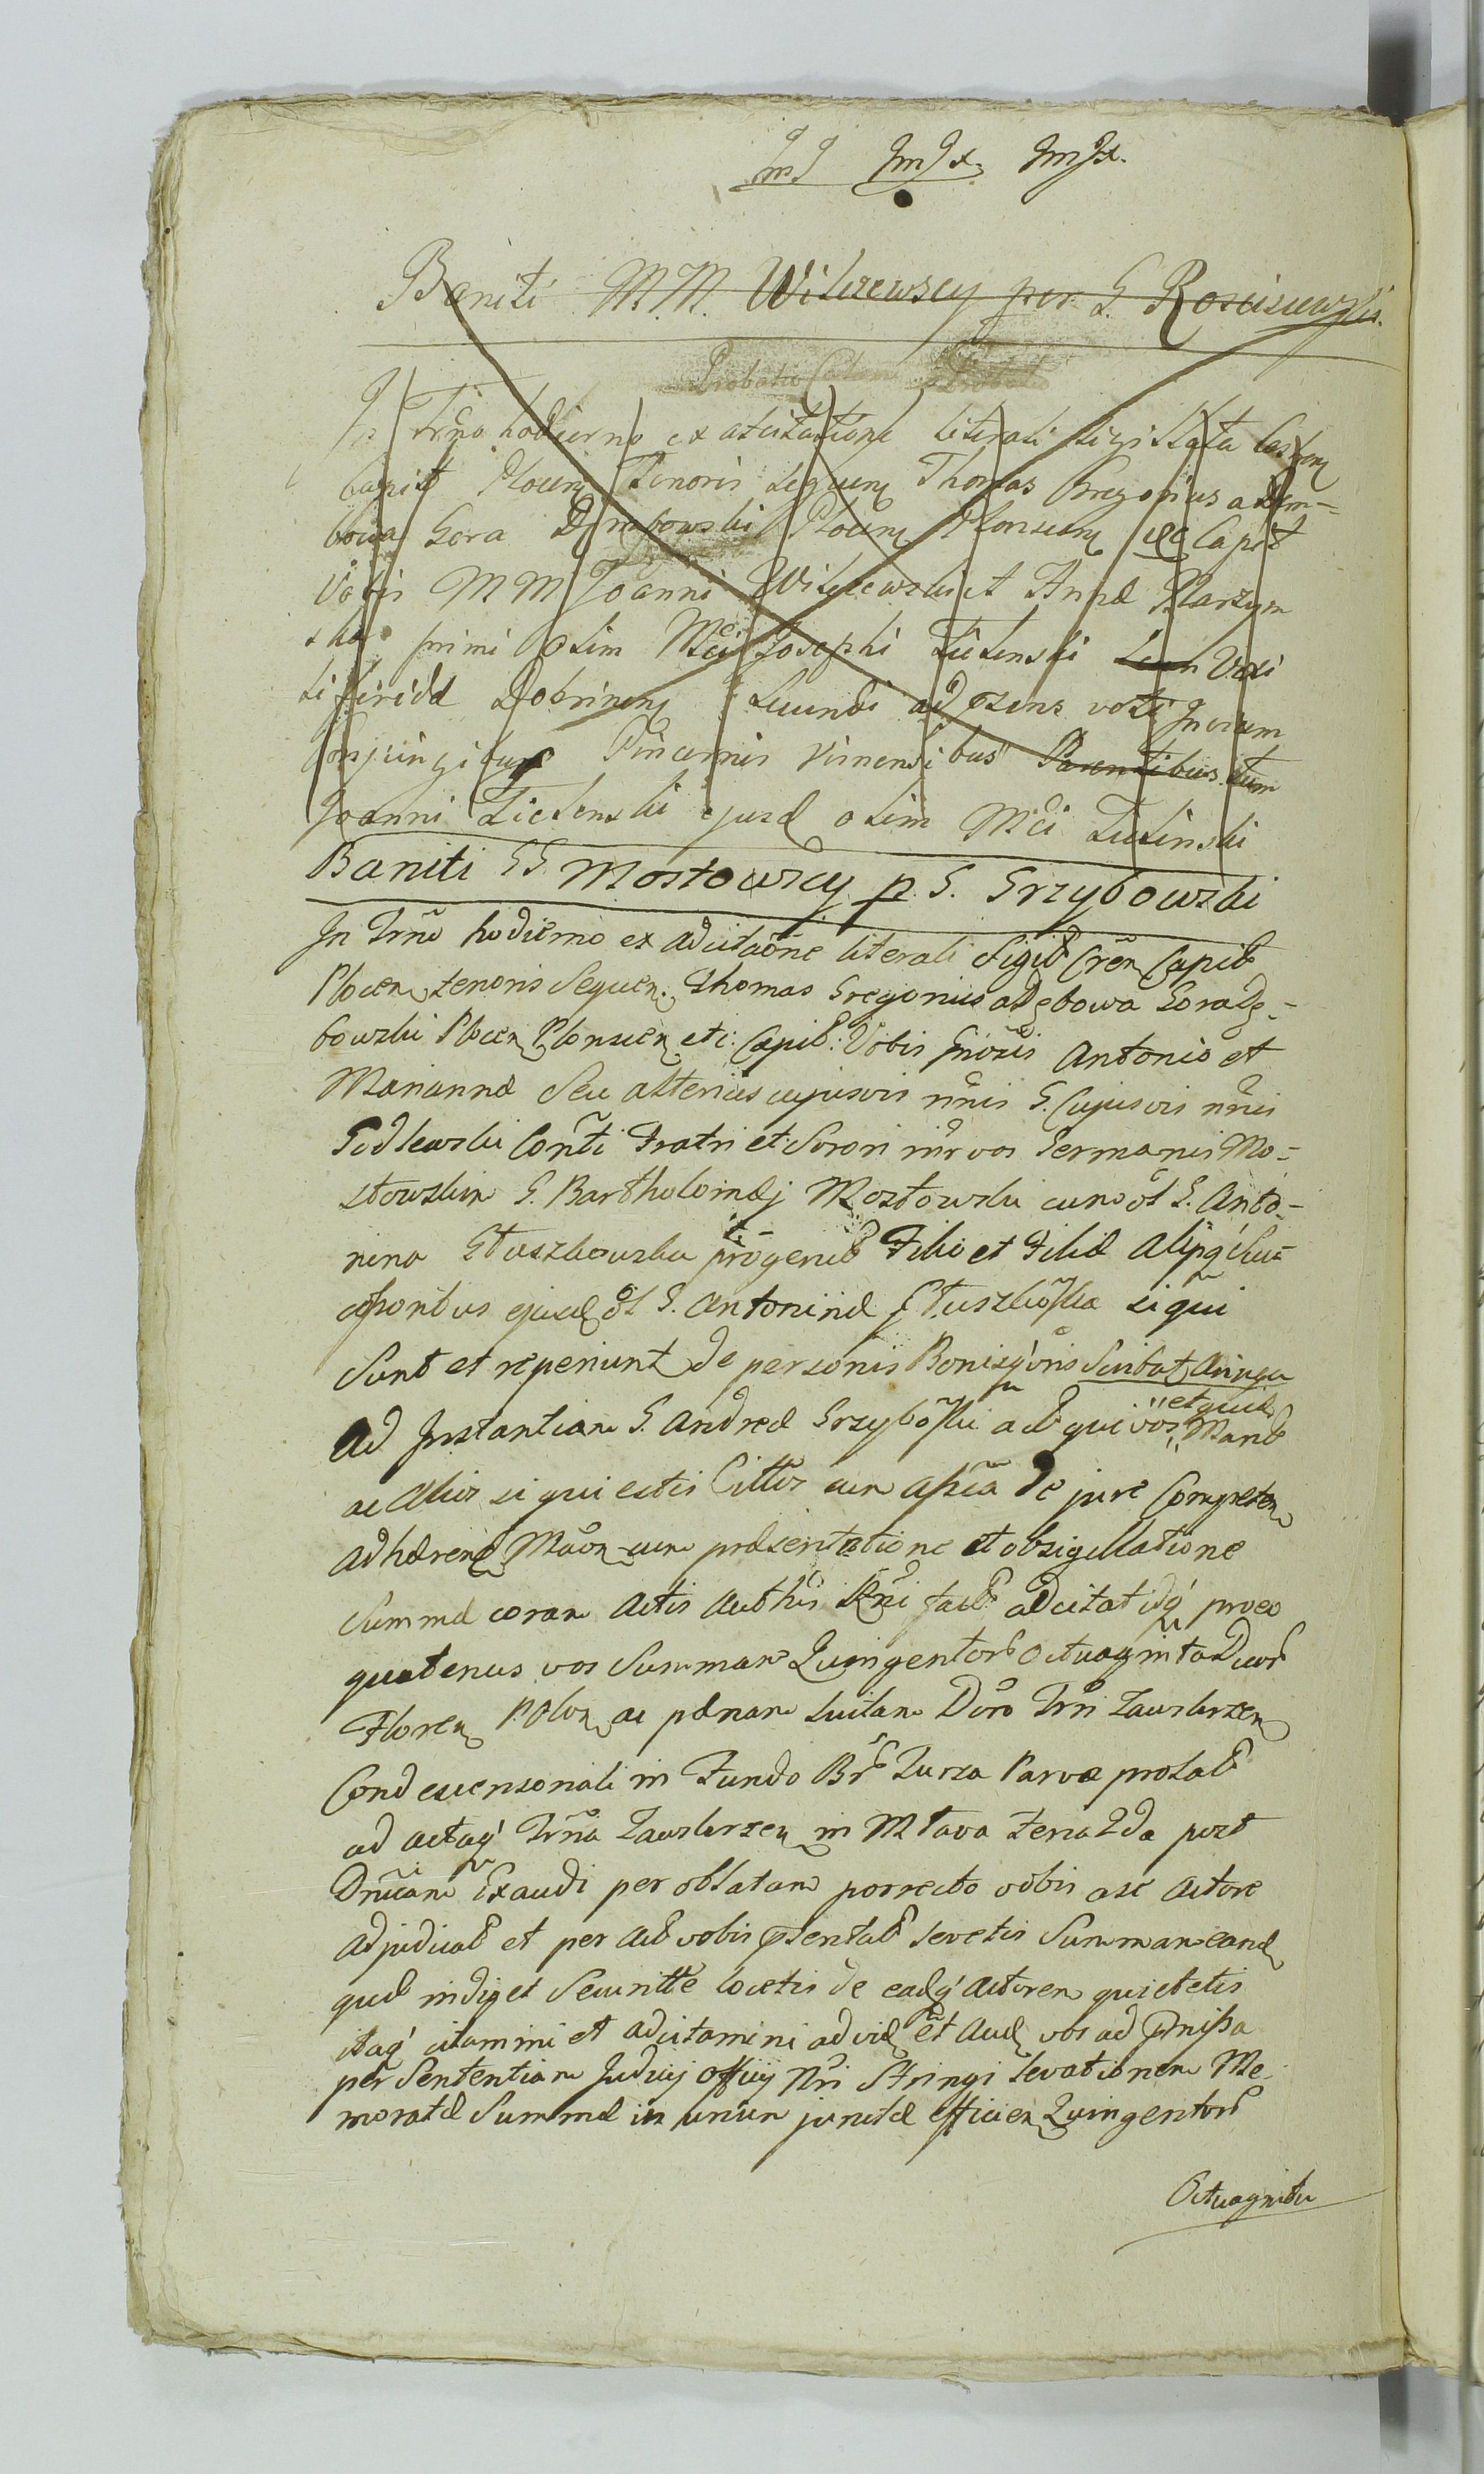 Baniti M.M. Wilczewscy per G. Rościszewski.
Probatio Calami
In Trno hodierno ex adcitatione literali sigillata
Capit Plocen Tenoris sequen Thomas Gregorius a Dem-
bowa Gora Dembowski Plocen Plonscen etc Capit
Vobis M M Joanni Wilczewski et Annæ
ska primi olim Mci Josephi Zielenski
Dobrinen secundi ad præsens voti Invicem
Conjungibus Pincernis Visnensibus Parentibus tum
Joanni Zielenski ejusd olim Mci Zielinski
Baniti GG Mostowscy p. G. Grzybowski
In Trno hodierno ex adcitaone literali Sigil Cren Capit
Plocen tenoris Sequen. Thomas Gregorius a Dębowa Gora Dę-
bowski Plocen Plonscen etc: Capit: Vobis Gnosis Antonio et
Mariannæ Seu alterius cujusvis nnis G. Cujusvis nnis
Godlewski Conti Fratri et Sorori inr vos Germanis Mo-
stowskim G. Bartholomæj Mostowski cum ol G. Anto-
nina Głuszkowska progenit Filio et Filiæ aliisq Suc-
cessoribus ejusd ol G. Antoninæ Głuszkoska si qui
Sunt et reperiunt de personis Bonisq oris
et quid
Ad Instantiam G. Andreæ Grzyboski act qui vos Mand
ac Alios si qui estis Cittos cum assia de jure Competen
adhæren Maon cum præsentatione et obsigellatione
Summæ coram Actis Authis Rni fact adcitat idq proeo
quatenus vos Summam Quingentor Octuaginta Duor
Floren Polon ac pænam luitam Dero Trri Zawskrzen
Condescensoriali in Fundo Br Zurza Parva prolat
ad actaq Trria Zawskrzen in Mława feria 2da post
Dnicam Exaudi per oblatam porrecto vobis a se Actore
adjudicat et per act vobis præsentat levetis Summam eand
quæ indiget Securitte locetis de eadq Actorem quietetis
itaq citamini et adcitamini ad vid et Aud vos ad præmissa
per Sententiam Judicij Officij Nri Stringi levationem Me-
moratæ Summæ in unum junctæ efficien Quingentor
Octuaginta